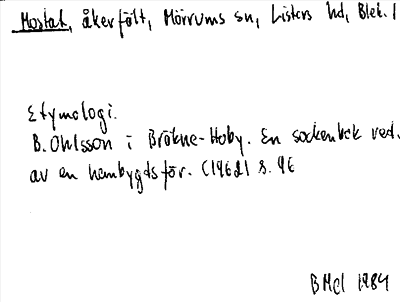 Mostat, åkerfält, Mörrums sn, Listers hd, Blek. l
Etymologi.
B. Ohlsson i Bräkne-Hoby. En sockenbok red.
av en hembygdsför. (1962) s. 96
BMcl 1984